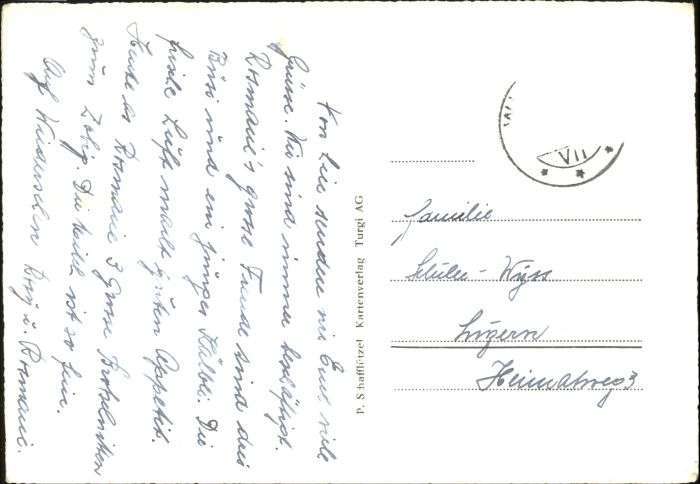 Von hier senden wir Euch viele
Grüsse. Wir sind immer beschäftigt.
Rosmarie's grosse Freude sind drei
Büsi und ein junges Kälbli. Die
frische Luft macht guten Appetit.
Heute as Rosmarie 3 grosse Brotschnitten
zum Zobig. Die Milch ist so fein.
Auf Wiedersehen Rosy u. Rosmarie.
P. Schafflützel Kartenverlag Turgi AG
VIII
Familie
Schuler-Wyss
Luzern
Heimatweg 3